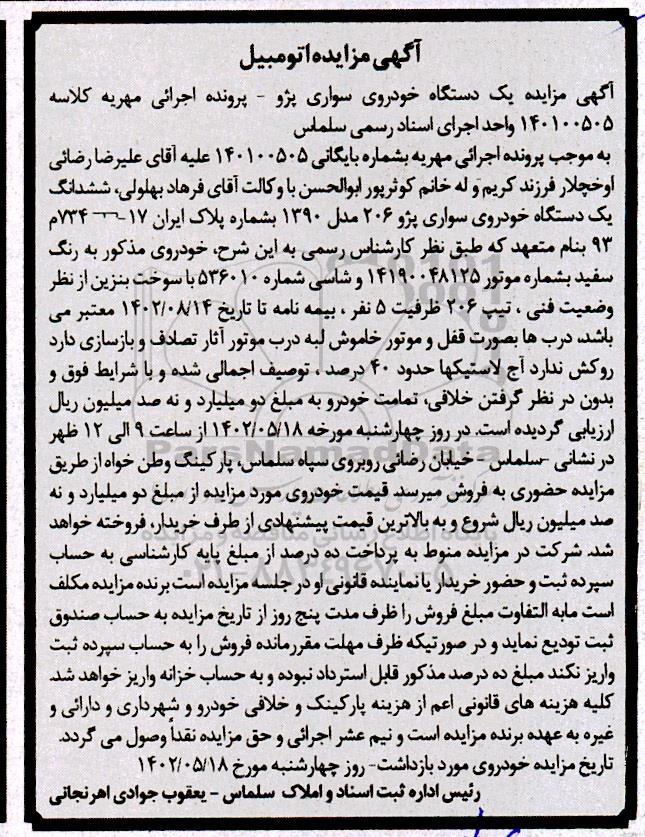 آگهی مزایده اتومبیل
آگهی مزایده یک دستگاه خودروی سواری پژو - پرونده اجرائی مهریه کلاسه
۱۴۰۱۰۰۵۰۵ واحد اجرای اسناد رسمی سلماس
به موجب پرونده اجرائی مهریه بشماره بایگانی ۱۴۰۱۰۰۵۰۵ علیه آقای علیرضا رضائی
اوخچلار فرزند کریم و له خانم کوثرپور ابوالحسن با وکالت آقای فرهاد بهلولی، ششدانگ
یک دستگاه خودروی سواری پژو ۲۰۶ مدل ۱۳۹۰ بشماره پلاک ایران ۱۷-۷۳۴م
۹۳ بنام متعهد که طبق نظر کارشناس رسمی به این شرح، خودروی مذکور به رنگ
سفید بشماره موتور ۱۴۱۹۰۰۴۸۱۲۵ و شاسی شماره ۵۳۶۰۱۰ با سوخت بنزین از نظر
وضعیت فنی ، تیپ ۲۰۶ ظرفیت ۵ نفر ، بیمه نامه تا تاریخ ۱۴۰۲/۰۸/۱۴ معتبر می
باشد، درب ها بصورت قفل و موتور خاموش لبه درب موتور آثار تصادف و بازسازی دارد
روکش ندارد آج لاستیکها حدود ۴۰ درصد ، توصیف اجمالی شده و با شرایط فوق و
بدون در نظر گرفتن خلافی، تمامت خودرو به مبلغ دو میلیارد و نه صد میلیون ریال
ارزیابی گردیده است. در روز چهارشنبه مورخه ۱۴۰۲/۰۵/۱۸ از ساعت ۹ الی ۱۲ ظهر
در نشانی -سلماس -خیابان رضائی روبروی سپاه سلماس، پارکینگ وطن خواه از طریق
مزایده حضوری به فروش میرسد. قیمت خودروی مورد مزایده از مبلغ دو میلیارد و نه
صد میلیون ریال شروع و به بالاترین قیمت پیشنهادی از طرف خریدار، فروخته خواهد
شد. شرکت در مزایده منوط به پرداخت ده درصد از مبلغ پایه کارشناسی به حساب
سپرده ثبت و حضور خریدار یا نماینده قانونی او در جلسه مزایده است برنده مزایده مکلف
است مابه التفاوت مبلغ فروش را ظرف مدت پنج روز از تاریخ مزایده به حساب صندوق
ثبت تودیع نماید و در صورتیکه ظرف مهلت مقرر مانده فروش را به حساب سپرده ثبت
واریز نکند مبلغ ده درصد مذکور قابل استرداد نبوده و به حساب خزانه واریز خواهد شد.
کلیه هزینه های قانونی اعم از هزینه پارکینگ و خلافی خودرو و شهرداری و دارائی و
غیره به عهده برنده مزایده است و نیم عشر اجرائی و حق مزایده نقداً وصول می گردد.
تاریخ مزایده خودروی مورد بازداشت- روز چهارشنبه مورخ ۱۴۰۲/۰۵/۱۸
رئیس اداره ثبت اسناد و املاک سلماس - یعقوب جوادی اهرنجانی
ParsNamadData